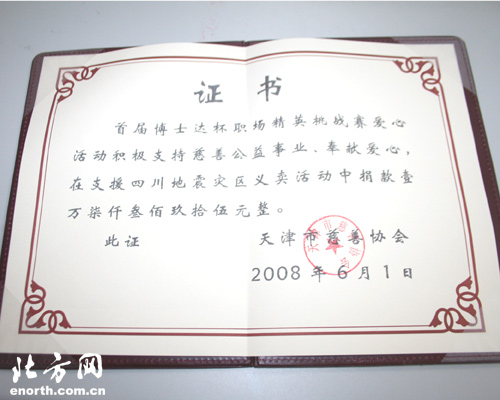 证书
首届博士达杯职场精英挑战赛爱心
活动积极支持慈善公益事业、奉献爱心，
在支援四川地震灾区义卖活动中捐款壹
万柒仟叁佰玖拾伍元整。
此证
天津市慈善协会
天津市慈善协会
2008年6月1日
北方网
enorth.com.cn